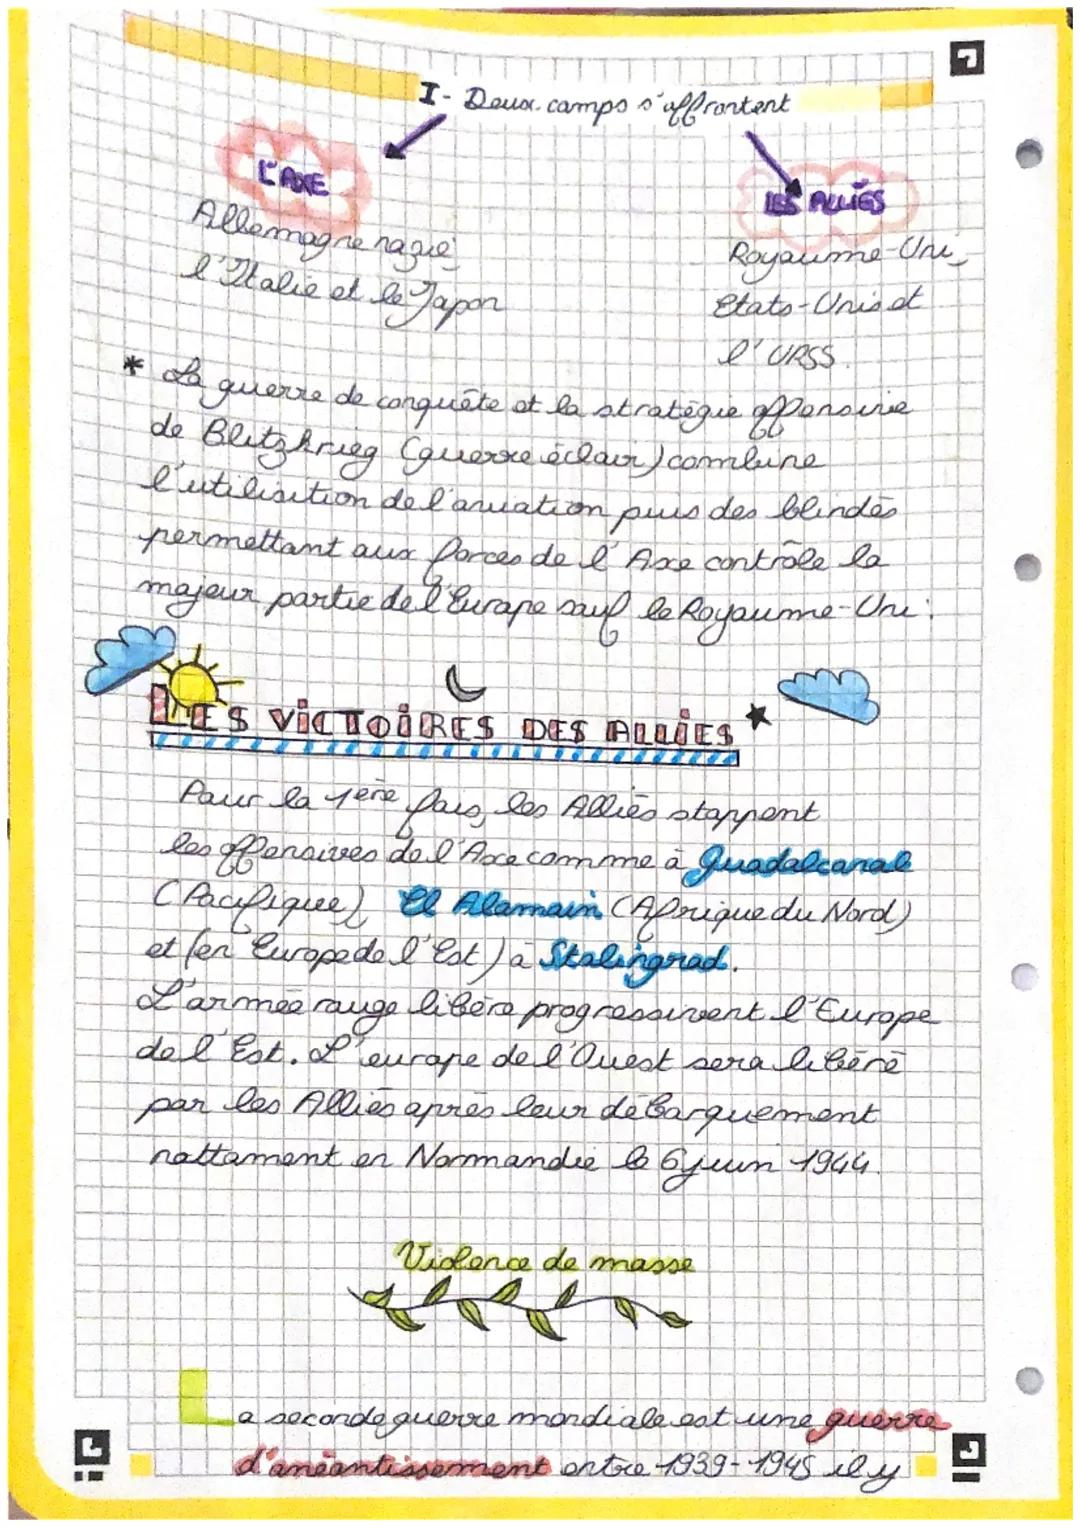 I- Deux camps s'affrontent
L'AXE
Allemagne nazie,
l'Italie et le Japon
LES ALLIÉS
Royaume-Uni,
Etats-Unis et
l'URSS.
* La guerre de conquête et la stratégie offensive
de Blitzkrieg (guerre éclair) combine
l'utilisation de l'aviation puis des blindés
permettant aux forces de l'Axe contrôle la
majeur partie de l'Europe sauf le Royaume-Uni.
LES VICTOIRES DES ALLIÉS
Pour la 1ère fois, les Alliés stoppent
les offensives de l'Axe comme à Guadalcanal
(Pacifique), El Alamein (Afrique du Nord)
et (en Europe de l'Est) à Stalingrad.
L'armée rouge libère progressivent l'Europe
de l'Est. L'europe de l'Ouest sera libéré
par les Alliés après leur débarquement
nottament en Normandie le 6 juin 1944.
Violence de masse
La seconde guerre mondiale est une guerre
d'anéantissement entre 1939-1945 il y